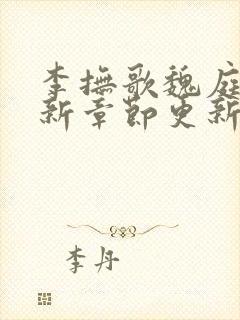 李撫歌魏庭
新章節更新
李丹